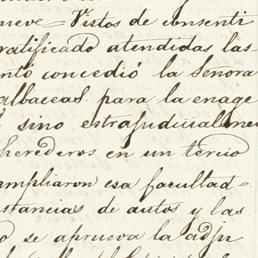 nueve = Vistos de consenti
ratificado atendidas las
nto concedió la Señora
albaceas para la enage
sino estrajudicialmen
herederos en un tercio
ampliaron esa facultad =
stancias de autos y las
o se aprueva la adju